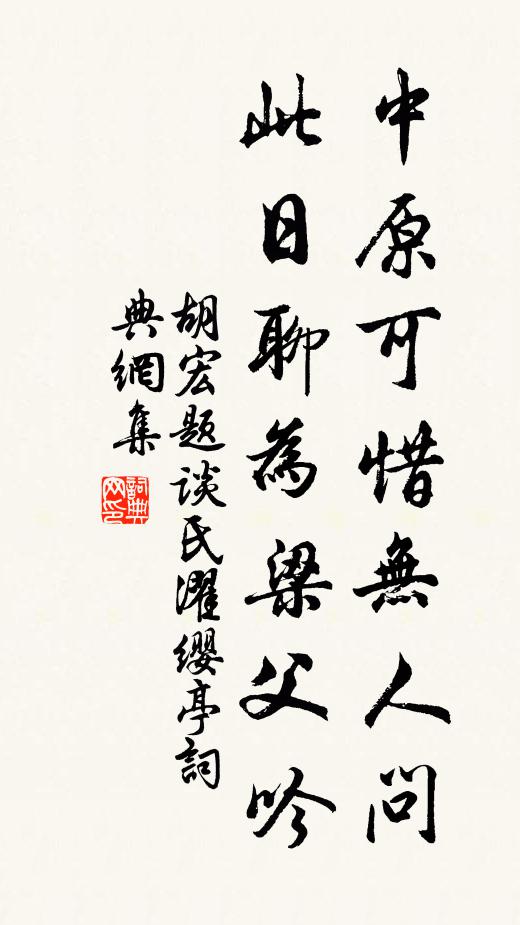 中原可惜無人問
此日聊為梁父吟
胡宏題談氏濯纓亭詞
典網集
詞典
网印